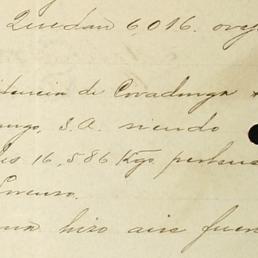 Quedan 6,016. ove
tencia de Covadonga
ango, S.A. siendo
es 16,586 Kgs perten
Lorenzo.
hizo aire fuer